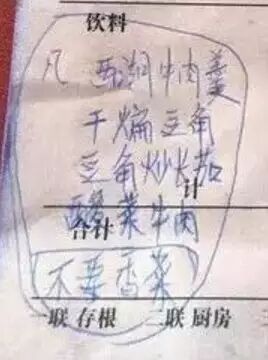 饮料
凡 西湖牛肉羹
干煸豆角
豆角炒长茄
计
酸菜牛肉
合计
不要香菜
一联 存根 二联 厨房